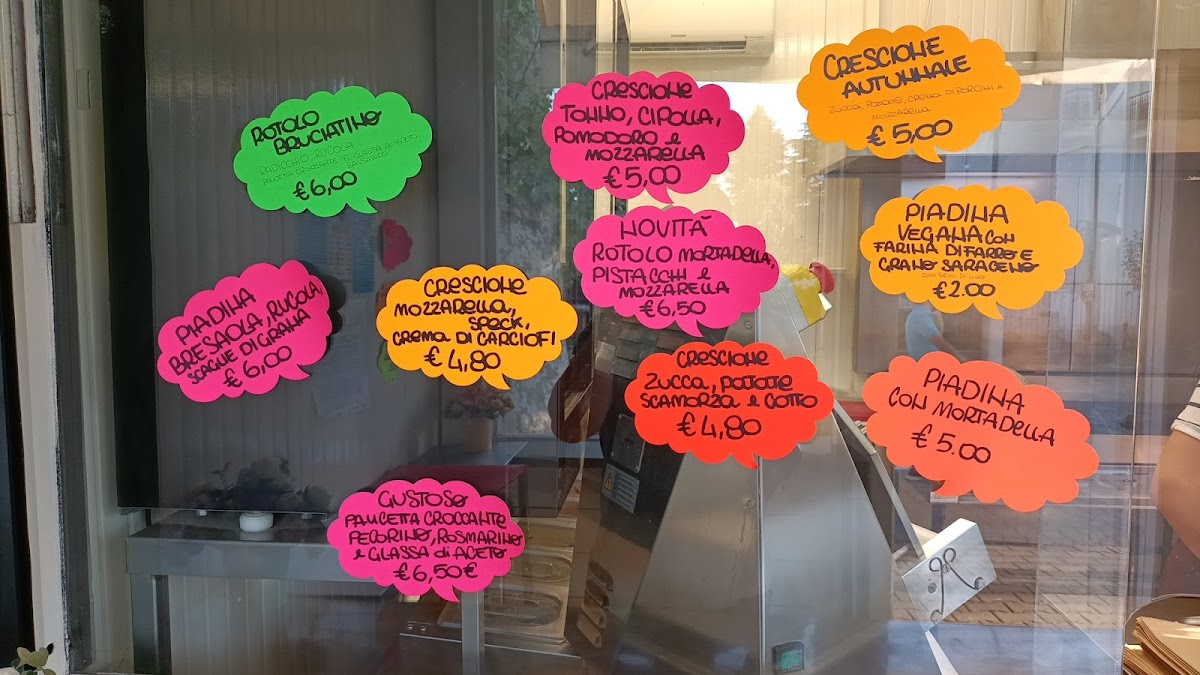 ROTOLO
BRUCIATINO
RADICCHIO, RUCOLA
PANCETTA CROCCANTE E GLASSA ACETO
BALSAMICO
€ 6,00
CRESCIONE
TONNO, CIPOLLA,
POMODORO e
MOZZARELLA
€ 5,00
CRESCIONE
AUTUNNALE
ZUCCA, PATATE, CREMA DI PORCINI e
MOZZARELLA
€ 5,00
NOVITÀ
ROTOLO MORTADELLA,
PISTACCHI e
MOZZARELLA
€ 6,50
PIADINA
VEGANA CON
FARINA DI FARRO E
GRANO SARACENO
€ 2.00
PIADINA
BRESAOLA, RUCOLA,
SCAGLIE DI GRANA
€ 6,00
CRESCIONE
MOZZARELLA,
SPECK,
CREMA DI CARCIOFI
€ 4,80
CRESCIONE
ZUCCA, PATATE
SCAMORZA e COTTO
€ 4,80
PIADINA
CON MORTADELLA
€ 5.00
GUSTOSO
PANCETTA CROCCANTE
PECORINO, ROSMARINO
e GLASSA di ACETO
€ 6,50€